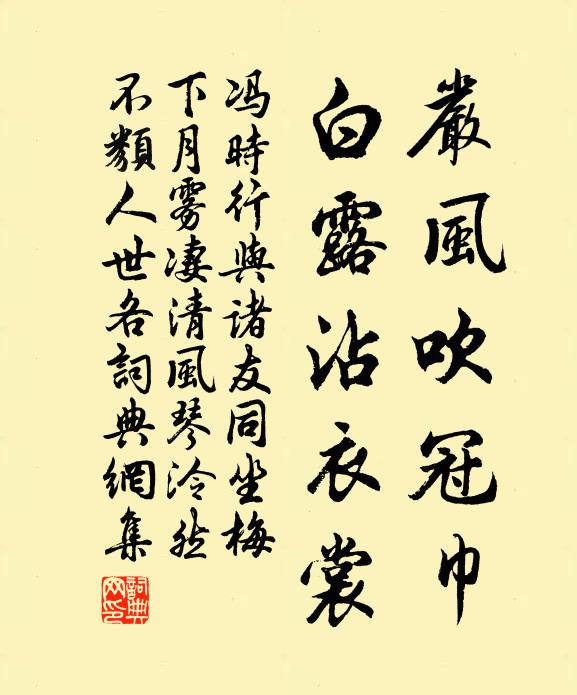 嚴風吹冠巾
白露沾衣裳
冯時行與諸友同坐梅
下月雾凄清風琴泠然
不類人世各詞典網集
詞典网印